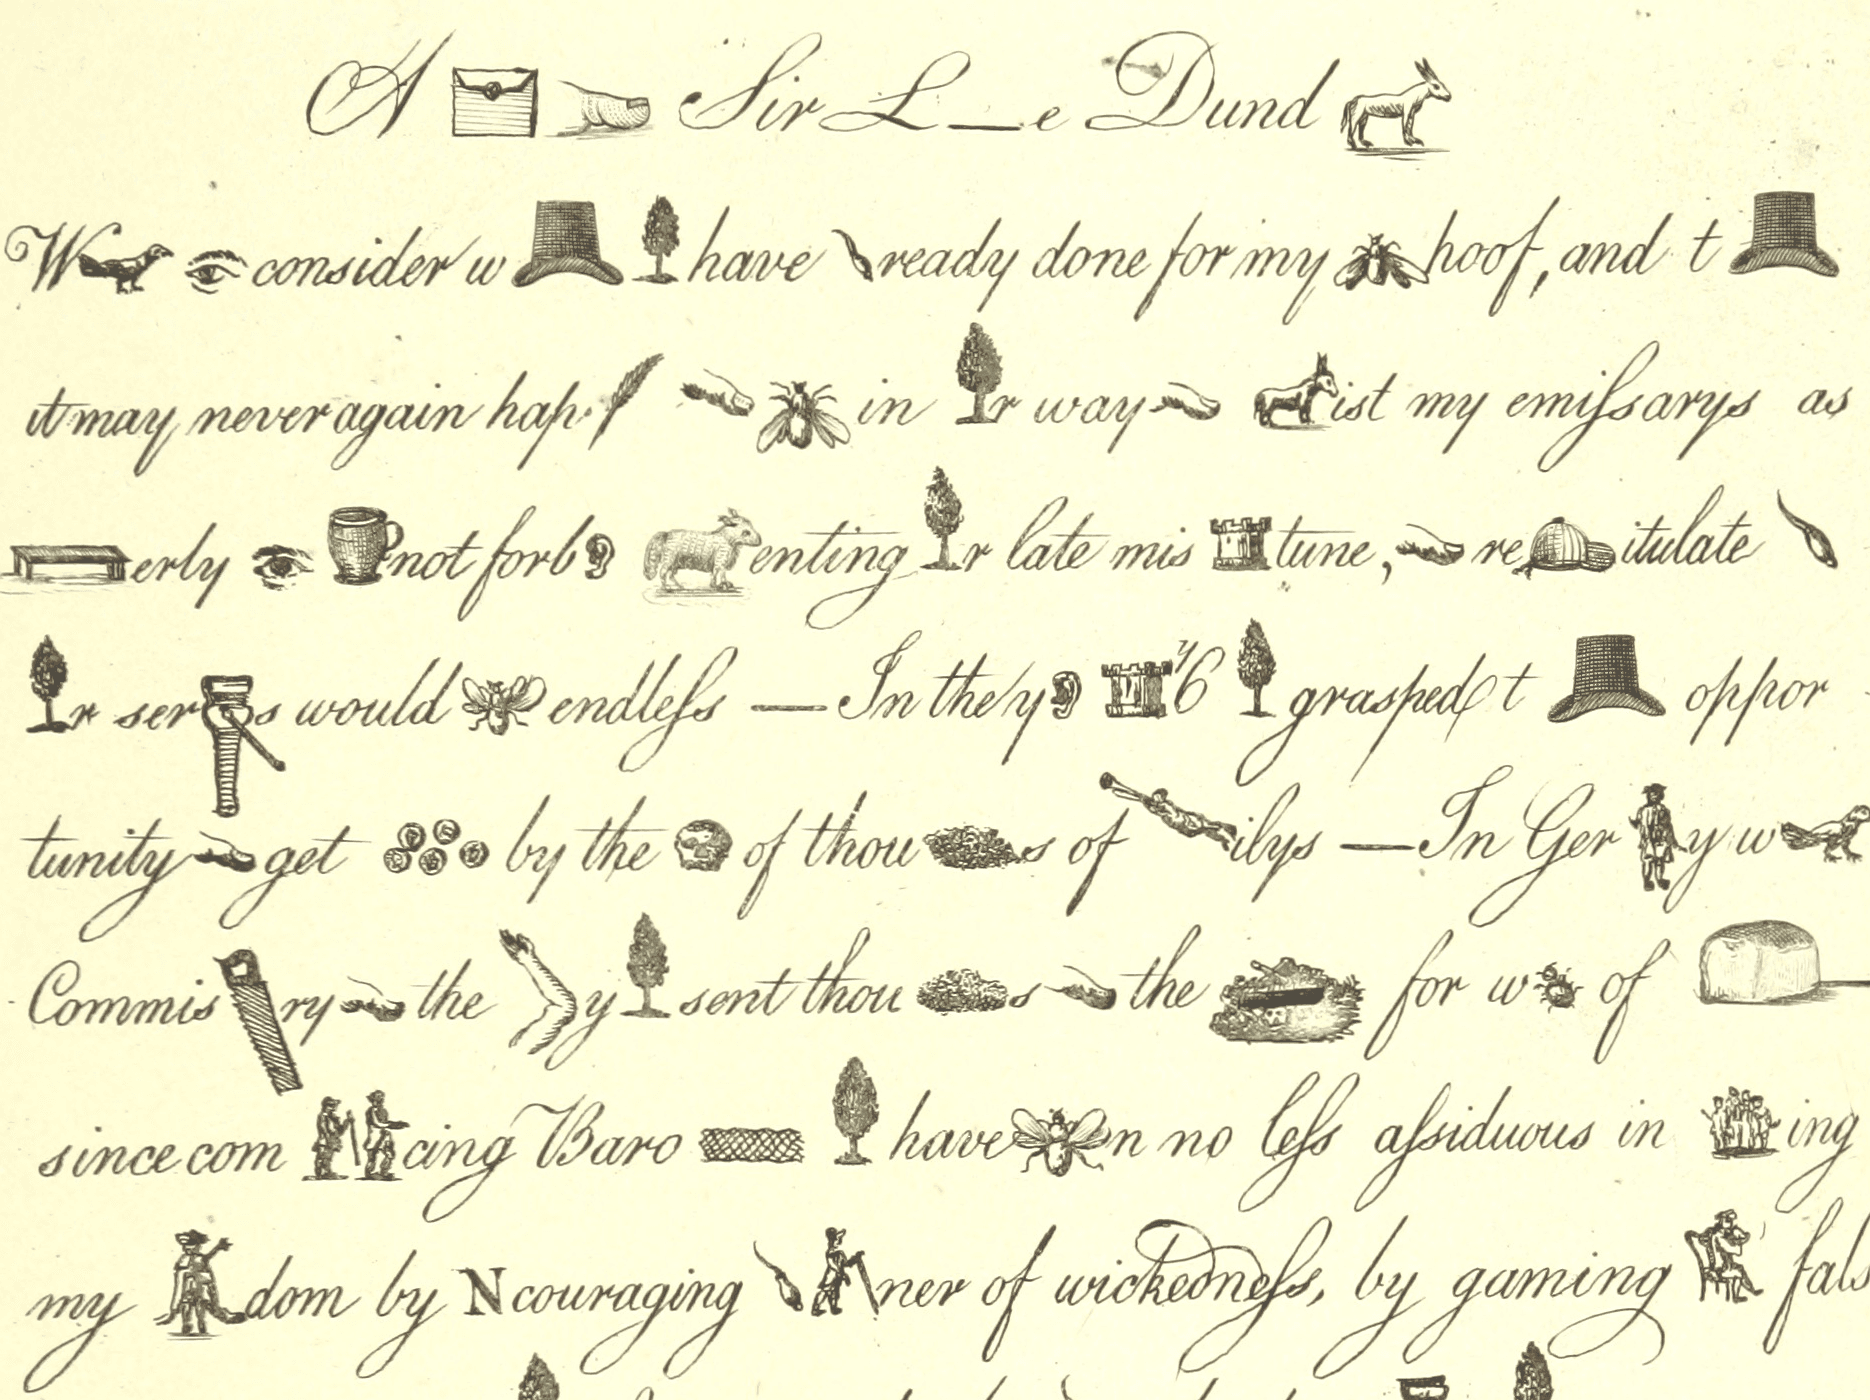 A Sir L—e Dund
W consider w have ready done for my hoof, and t
it may never again hap in r way ist my emissarys as
erly not forb enting r late mis tune, re itulate
r ser s would endless — In the y '76 grasped t oppor
tunity get by the of thou s of ilys — In Ger y w
Commis ry the y sent thou s the for w of
since com cing Baro have n no less assiduous in ing
my dom by Ncouraging ner of wickedness, by gaming fals